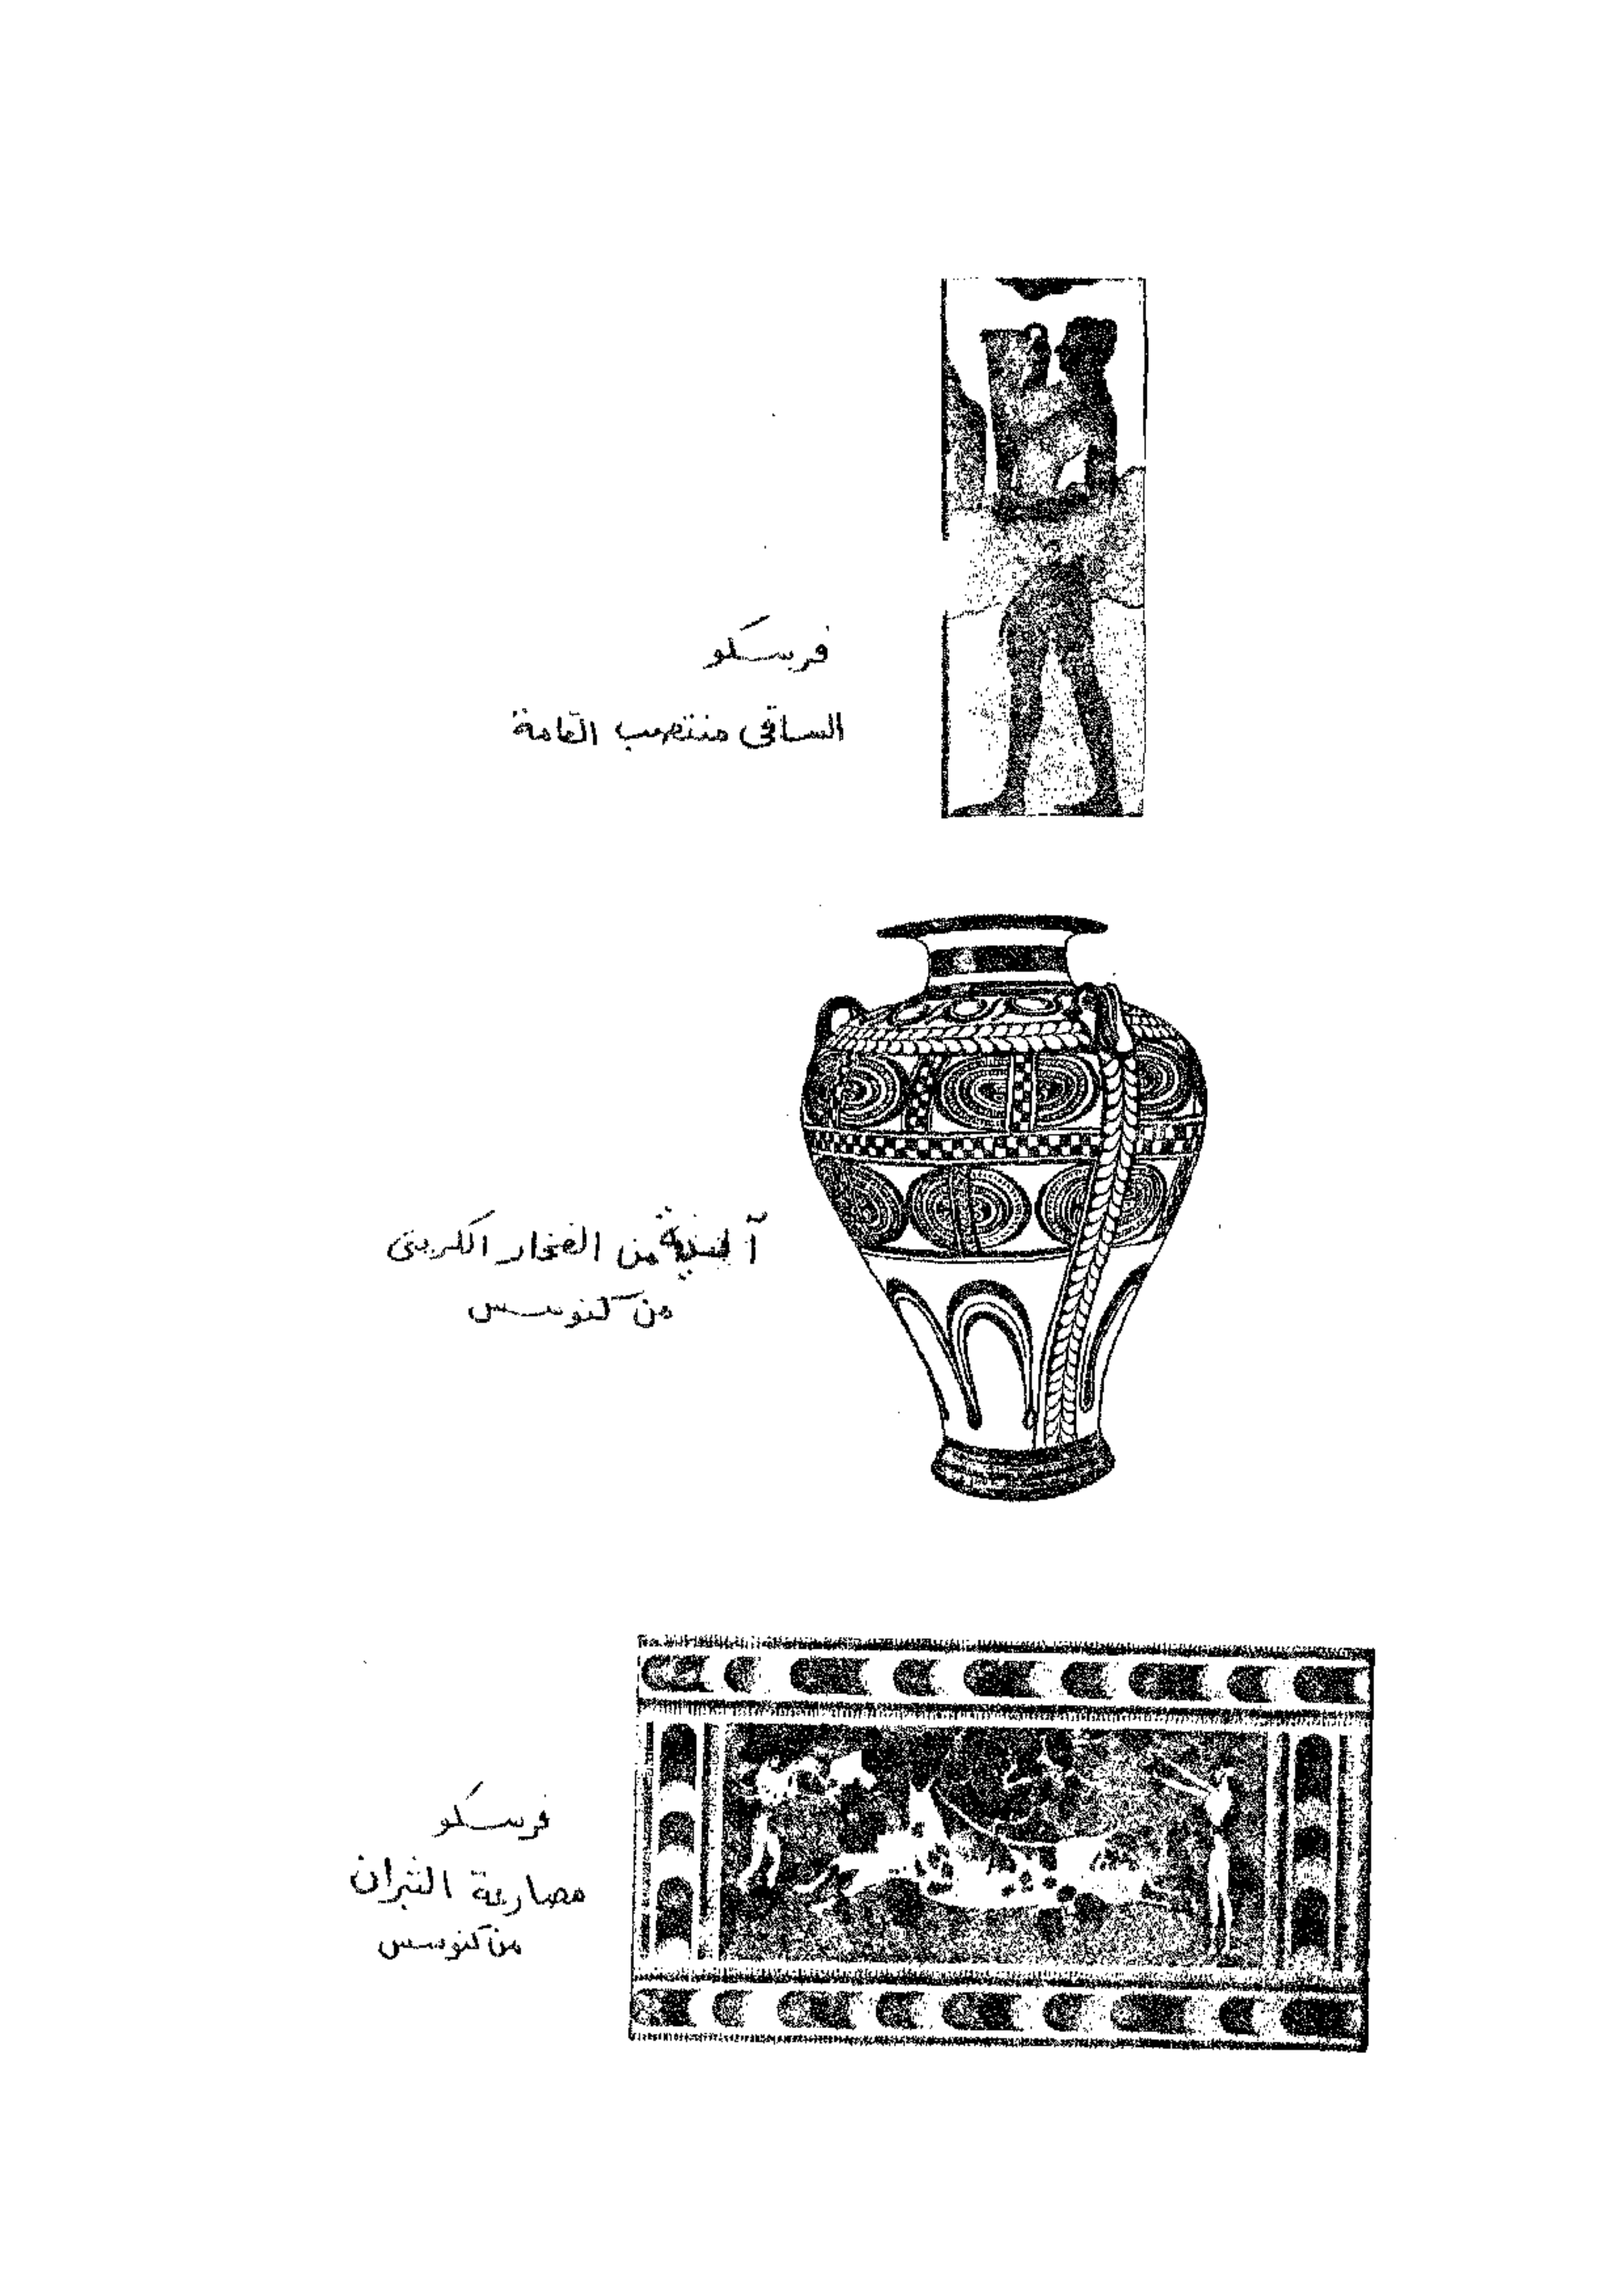 فرسكو
الساقى منتصب القامة
آنية من الفخار الكريتى
من كنوسس
فرسكو
مصارعة الثيران
من كنوسس